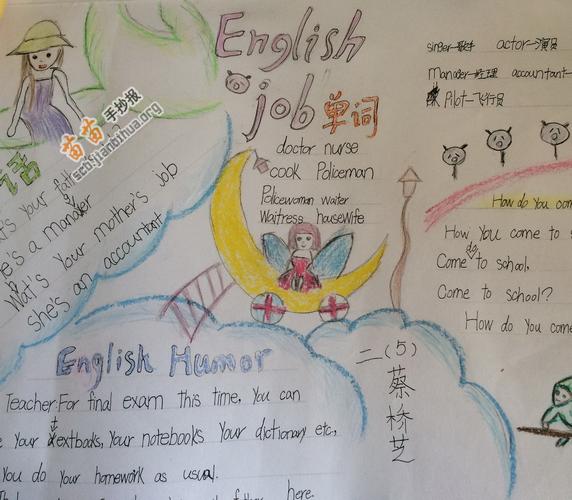 English
job 单词
doctor nurse
cook Policeman
Policewoman waiter
Waitress housewife
singer-歌手 actor-演员
manager-经理 accountant-
Pilot-飞行员
苗苗手抄报
scb.jianbihua.org
话
your fath
he's a manager
Wat's your mother's job
she's an accountant
How do you com
How you come to s
do
Come to school,
Come to school?
How do you come
English Humor
Teacher: For final exam this time, You can
e Your textbooks, Your notebooks Your dictionary etc,
You do Your homework as usual.
here.
二(5)
蔡桥芝